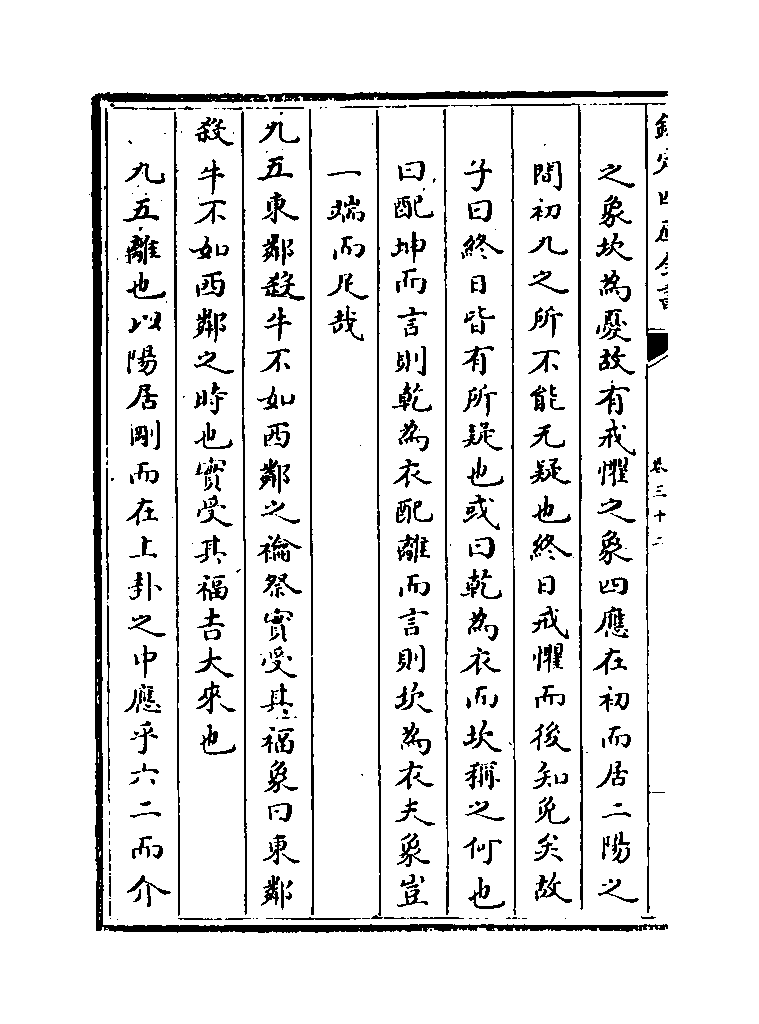 欽定四庫全書
卷三十二
之象坎為憂故有戒懼之象四應在初而居二陽之
間初九之所不能无疑也終日戒懼而後知免矣故
子曰終日皆有所疑也或曰乾為衣而坎稱之何也
曰配坤而言則乾為衣配離而言則坎為衣夫象豈
一端而足哉
九五東鄰殺牛不如西鄰之禴祭實受其福象曰東鄰
殺牛不如西鄰之時也實受其福吉大來也
九五離也以陽居剛而在上卦之中應乎六二而介